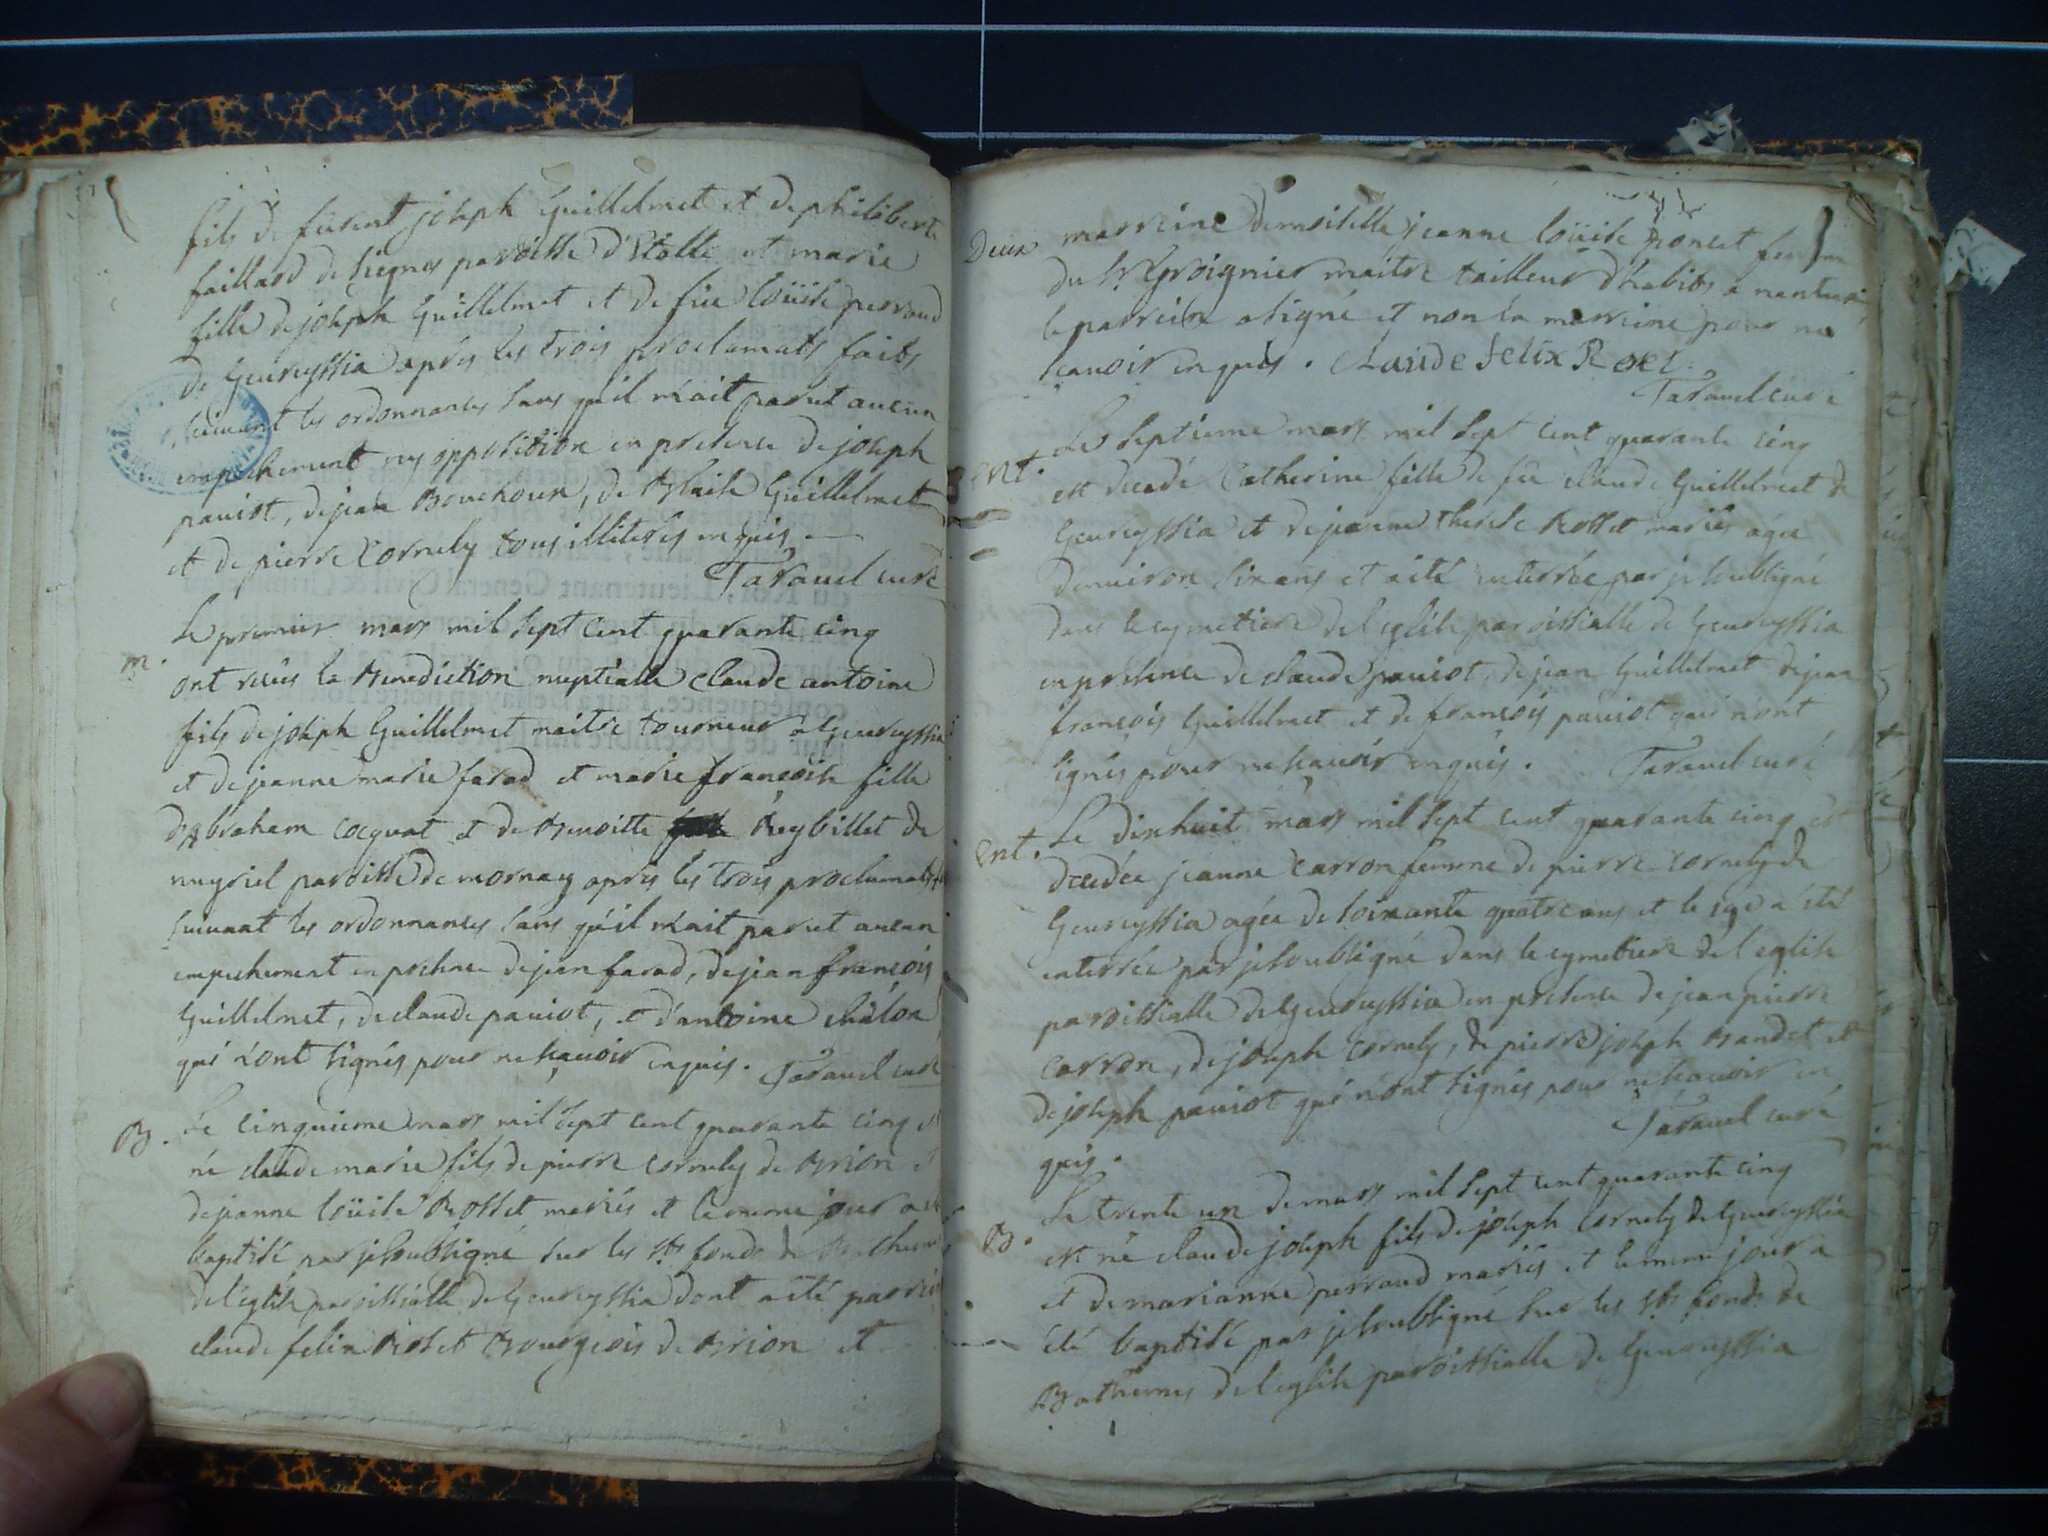 fils de furent joseph Guillelmet et de philiberte
faillard de Siegnes paroisse d'Etable et marie
fille de joseph Guillelmet et de füe loüise perraud
de Geureyssia après les trois proclamats faits
suivant les ordonnances sans qu'il n'ait parut aucun
empechement ny opposition en presence de joseph
paviot, de jean Bouchoux, de Blaise Guillelmet
et de pierre Cornely tous illiterés enquis.
Taravel curé
m.
Le premier mars mil sept cent quarante cinq
ont reçus la Benediction nuptialle claude antoine
fils de joseph Guillelmet maitre tourneur a Geureyssia
et de jeanne marie farad et marie françoise fille
d'Abraham cocquat et de Benoitte Reybillet de
nuyriel paroisse de mornay apres les trois proclamats
suivant les ordonnances sans qu'il n'ait parut aucun
empechement en presence de jean farad, de jean françois
Guillelmet, de claude paviot, et d'antoine
qui n'ont signés pour ne sçavoir enquis. Taravel curé
B.
Le cinquieme mars mil sept cent quarante cinq est
né claude marie fils de pierre cornely de Brion et
de jeanne loüise Rosset mariés et le meme jour a
baptisé par je soubsigné sur les sts fonds de
de l'eglise paroissialle de Geureyssia dont a été parrin
claude felix Rosset Bourgeois de Brion et
Deux
marreine demoiselle jeanne loüise poncet femme
du Sr Groignier maitre tailleur d'habits a nantua
le parrein a signé et non la marreine pour ne
sçavoir enquis. Claude Felix Roset
Taravel curé
ent.
Le septieme mars mil sept cent quarante cinq
est decedé Catherine fille de füe claude Guillelmet de
Geureyssia et de jeanne therese Rosset mariés agée
d'environ six ans et a été enterrée par je soubsigné
dans le cymetiere de l'eglise paroissialle de Geureyssia
en presence de claude paviot, de jean Guillelmet de jean
françois Guillelmet et de françois paviot qui n'ont
signés pour ne sçavoir enquis. Taravel curé
Ent.
Le dixhuit mars mil sept cent quarante cinq est
decedée jeanne Carron femme de pierre Cornely de
Geureyssia agée de soixante quatre ans et le a été
enterrée par je soubsigné dans le cymetiere de l'eglise
paroissialle de Geureyssia en presence de jean pierre
carron, de joseph cornely, de pierre joseph Bandet et
de joseph paviot qui n'ont signés pour ne sçavoir en
quis.
Taravel curé
B.
Le trente un de mars mil sept cent quarante cinq
est né claude joseph fils de joseph Cornely de Geureyssia
et de marianne perraud mariés et le meme jour a
été baptisé par je soubsigné sur les sts fonds de
Bathemes de l'eglise paroissialle de Geureyssia